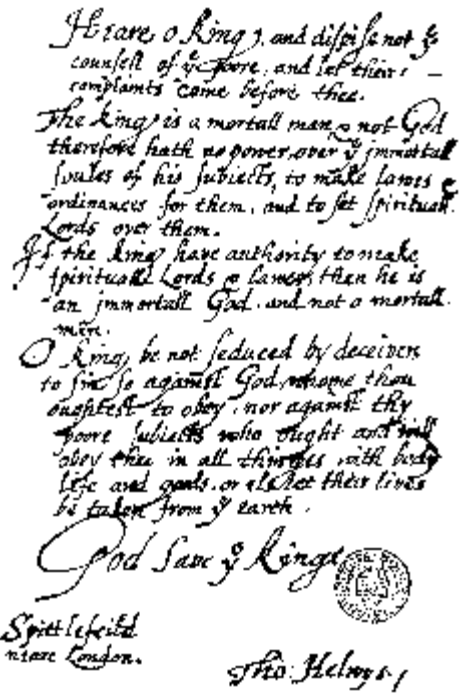 Heare o King, and dispise not yͤ
counsell of yͤ poore, and let their
complaints come before thee.
The king is a mortall man, & not God
therefore hath no power over yͤ immortall
soules of his subiects, to make lawes &
ordinances for them, and to set spirituall
Lords over them.
If the king have authority to make
spirituall Lords & lawes, then he is
an immortall God, and not a mortall
man.
O king, be not seduced by deceivers
to sin so against God whome thou
oughtest to obey, nor against thy
poore subiects who ought and will
obey thee in all thinges with body
life and goods, or els let their lives
be taken from yͤ earth.
God save yͤ King
Spittlefeild
neare London.
Tho: Helwys.